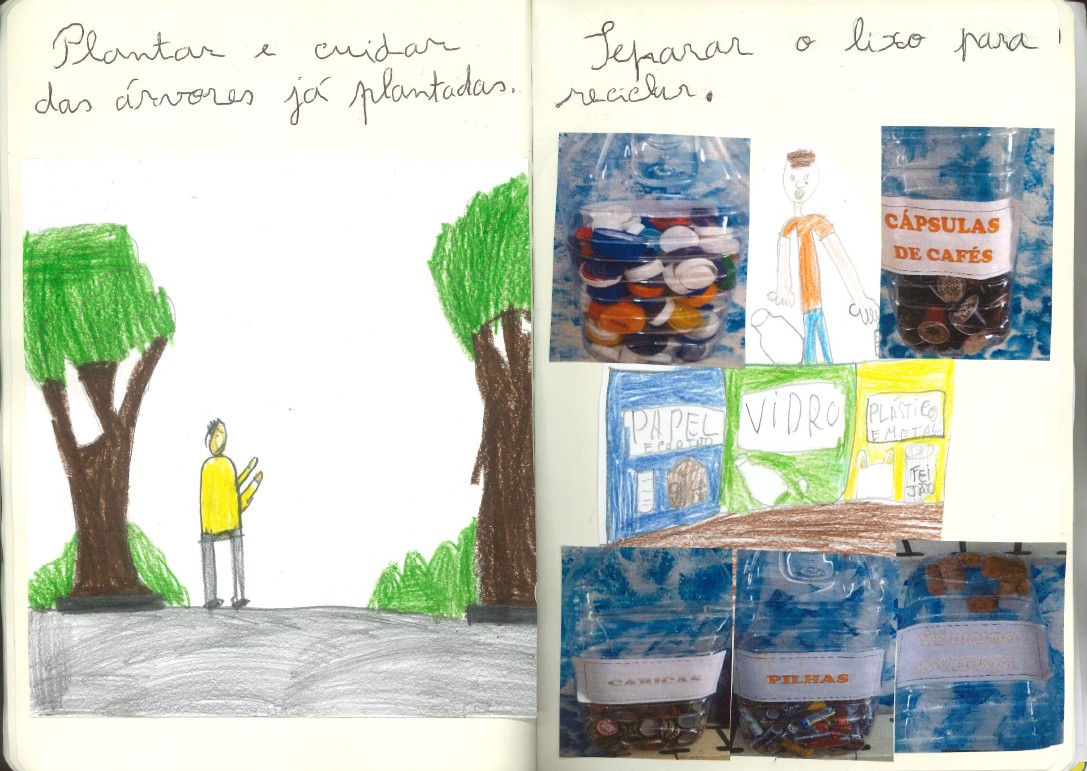 Plantar e cuidar
das árvores já plantadas.
Separar o lixo para
reciclar.
CÁPSULAS
DE CAFÉS
PAPEL
VIDRO
PLÁSTICO
E METAL
FEI
JÃO
CARICAS
PILHAS